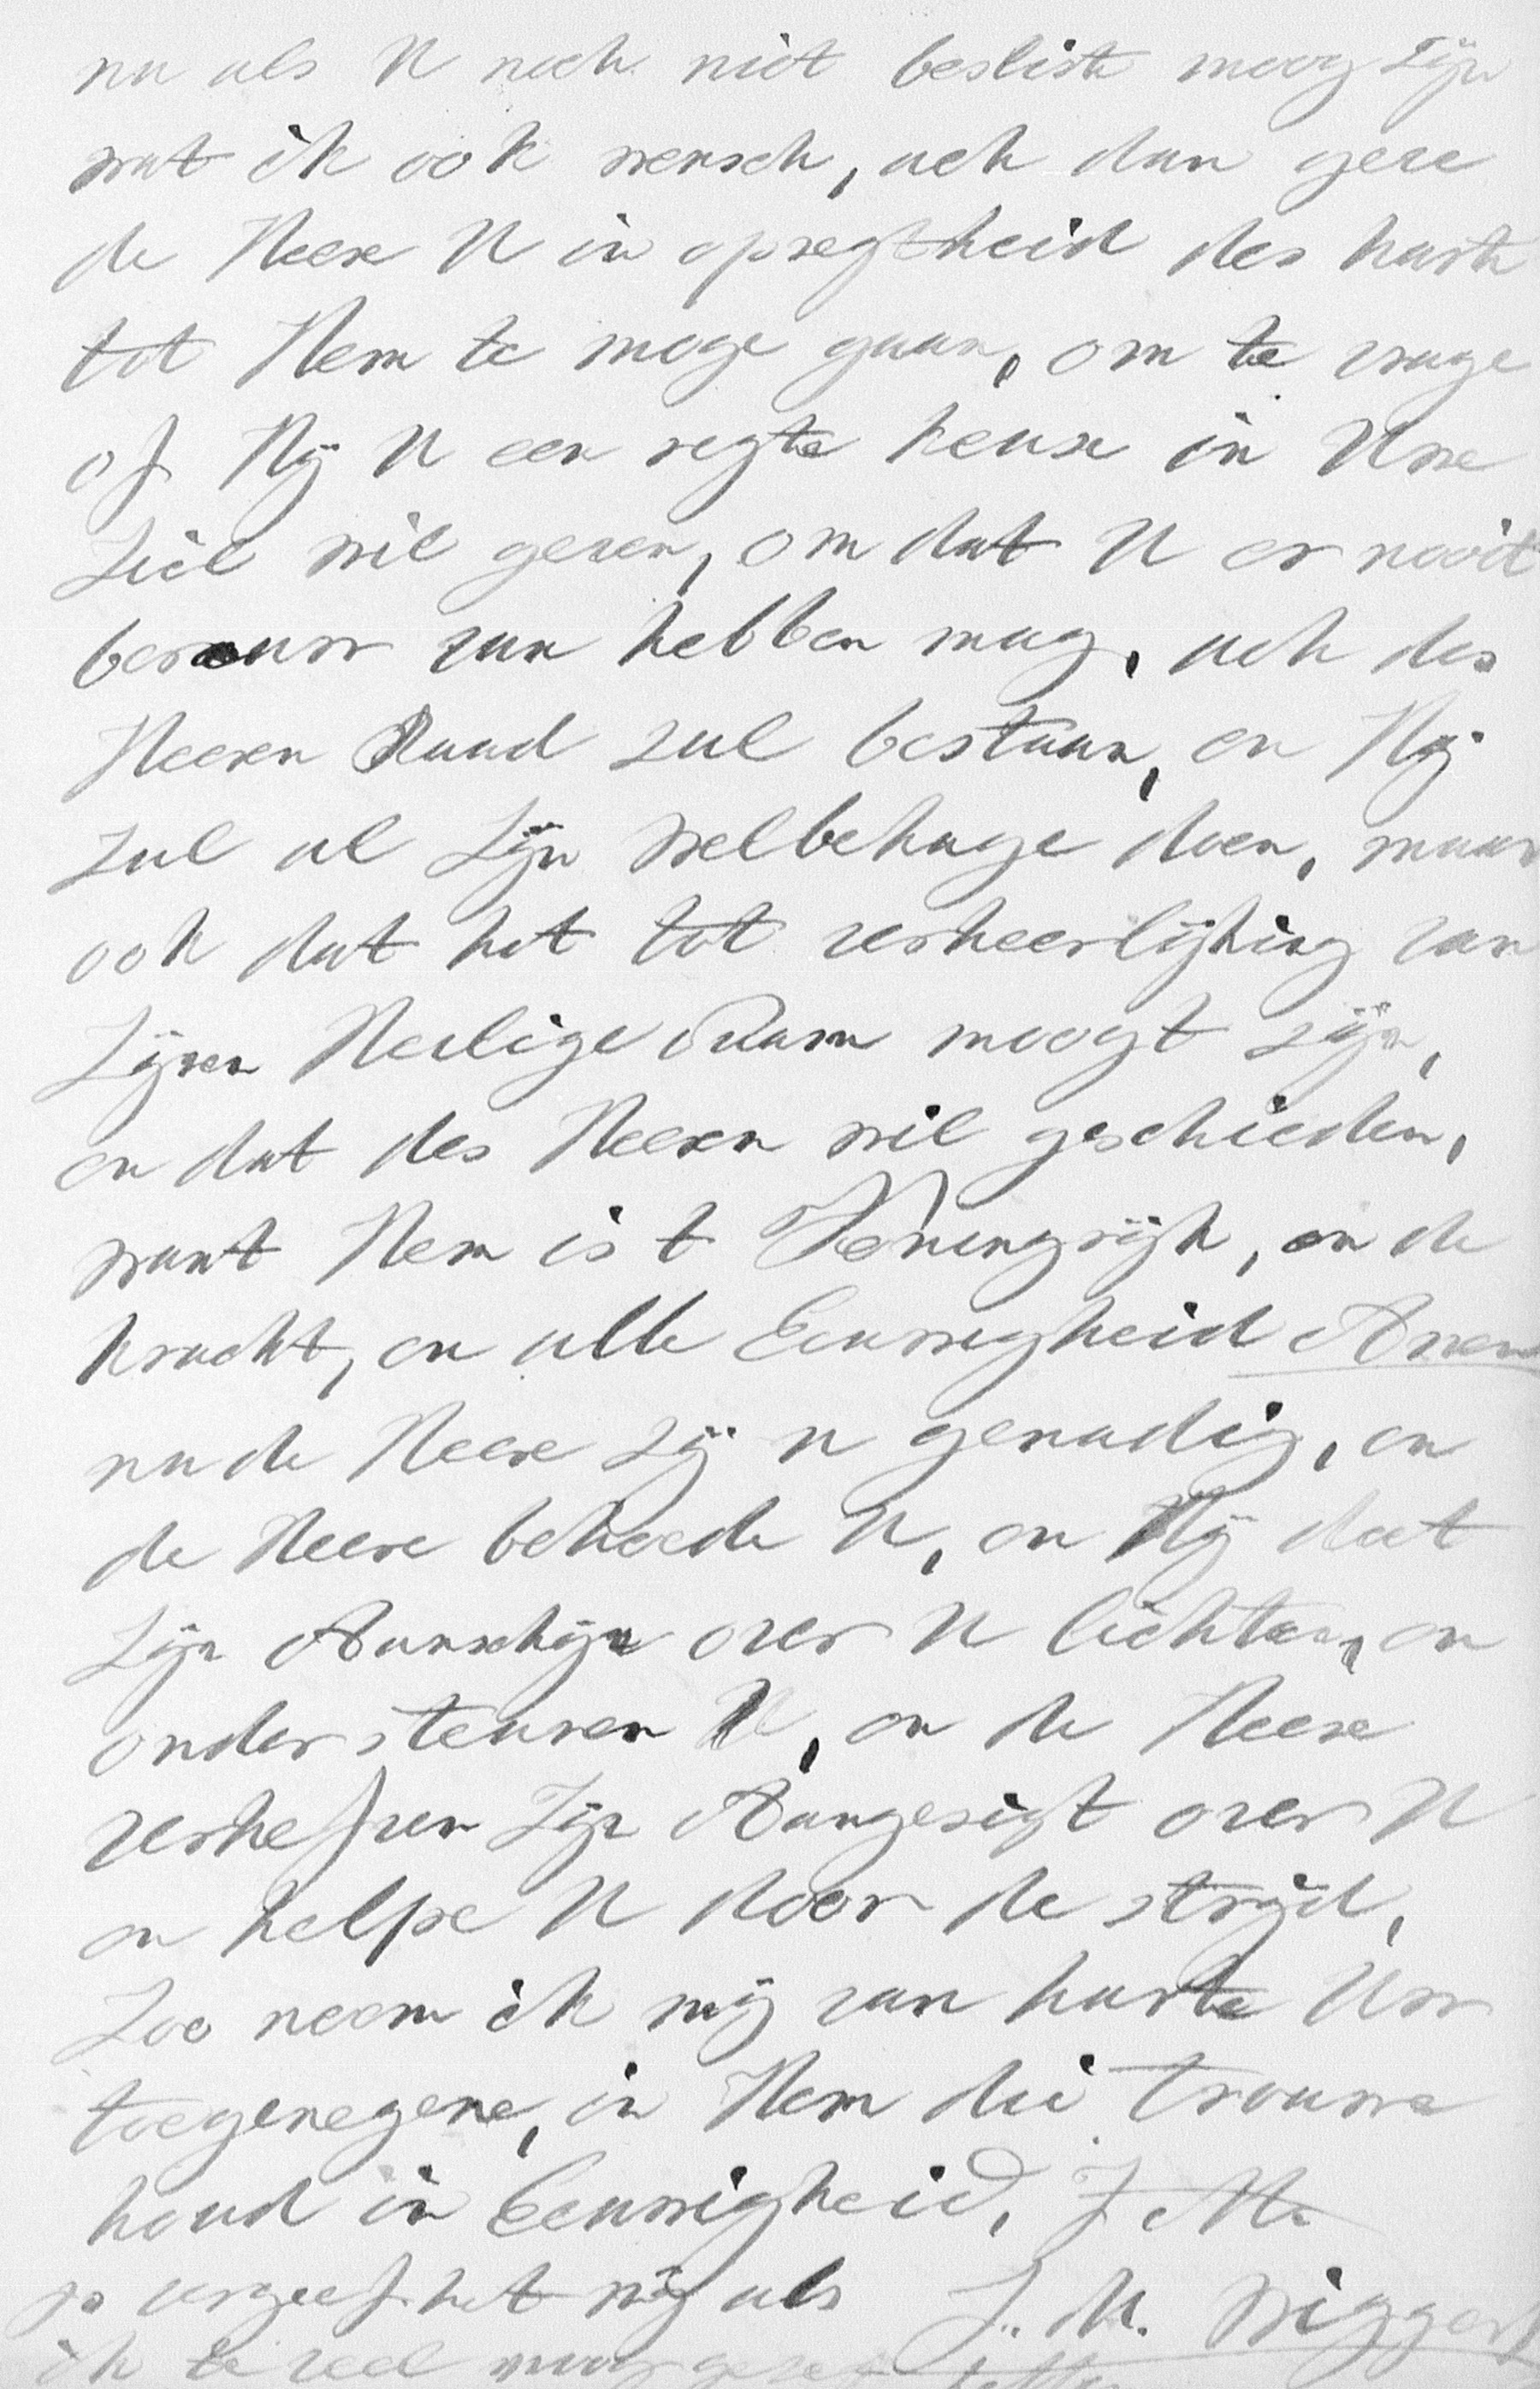 nu als U noch niet besliste moog zijn
wat ik ook wensch, ach dan geve
de Heere U in opregtheid des harte
tot Hem te moge gaan, om te vrage
of Hij U een regte keuse in Uwe
Ziel wil geven, om dat U er nooit
berouw van hebben mag, ach des
Heeren Raad zal bestaan, en Hij
zal al Zijn welbehage doen, maar
ook dat het tot verheerlijking van
Zijnen Heilige Naam moogt zijn,
en dat des Heeren wil geschieden,
want Hem is t Koningrijk, en de
kracht, en alle Eeuwigheid Amen
nu de Heere zij u genadig, en
de Heere behoede U, en Hij doet
Zijn Aanschijn over U lichten, en
ondersteunen U, en de Heere
verheffen Zijn Aangesigt over U
en helpe U door de strijd,
Zoo noem ik mij van harte Uw
toegenegene, in Hem die trouwe
houd in Eeuwigheid,
ps vergeef het mij als J. M. Wiggers
ik te veel